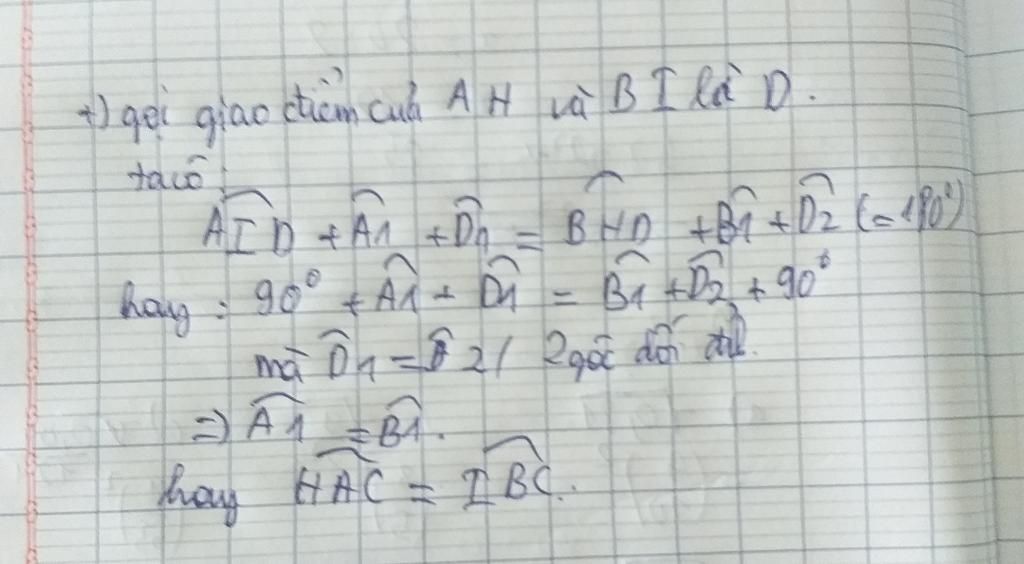 +) gọi giao điểm của AH và BI là D.
ta có:
$\widehat{AID} + \widehat{A1} + \widehat{D1} = \widehat{BHD} + \widehat{B1} + \widehat{D2} (= 180^0)$
hay: $90^0 + \widehat{A1} + \widehat{D1} = \widehat{B1} + \widehat{D2} + 90^0$
mà $\widehat{D1} = \widehat{D}2$ ( 2 góc đối đỉnh.
=> $\widehat{A1} = \widehat{B1}$.
hay $\widehat{HAC} = \widehat{IBC}$..